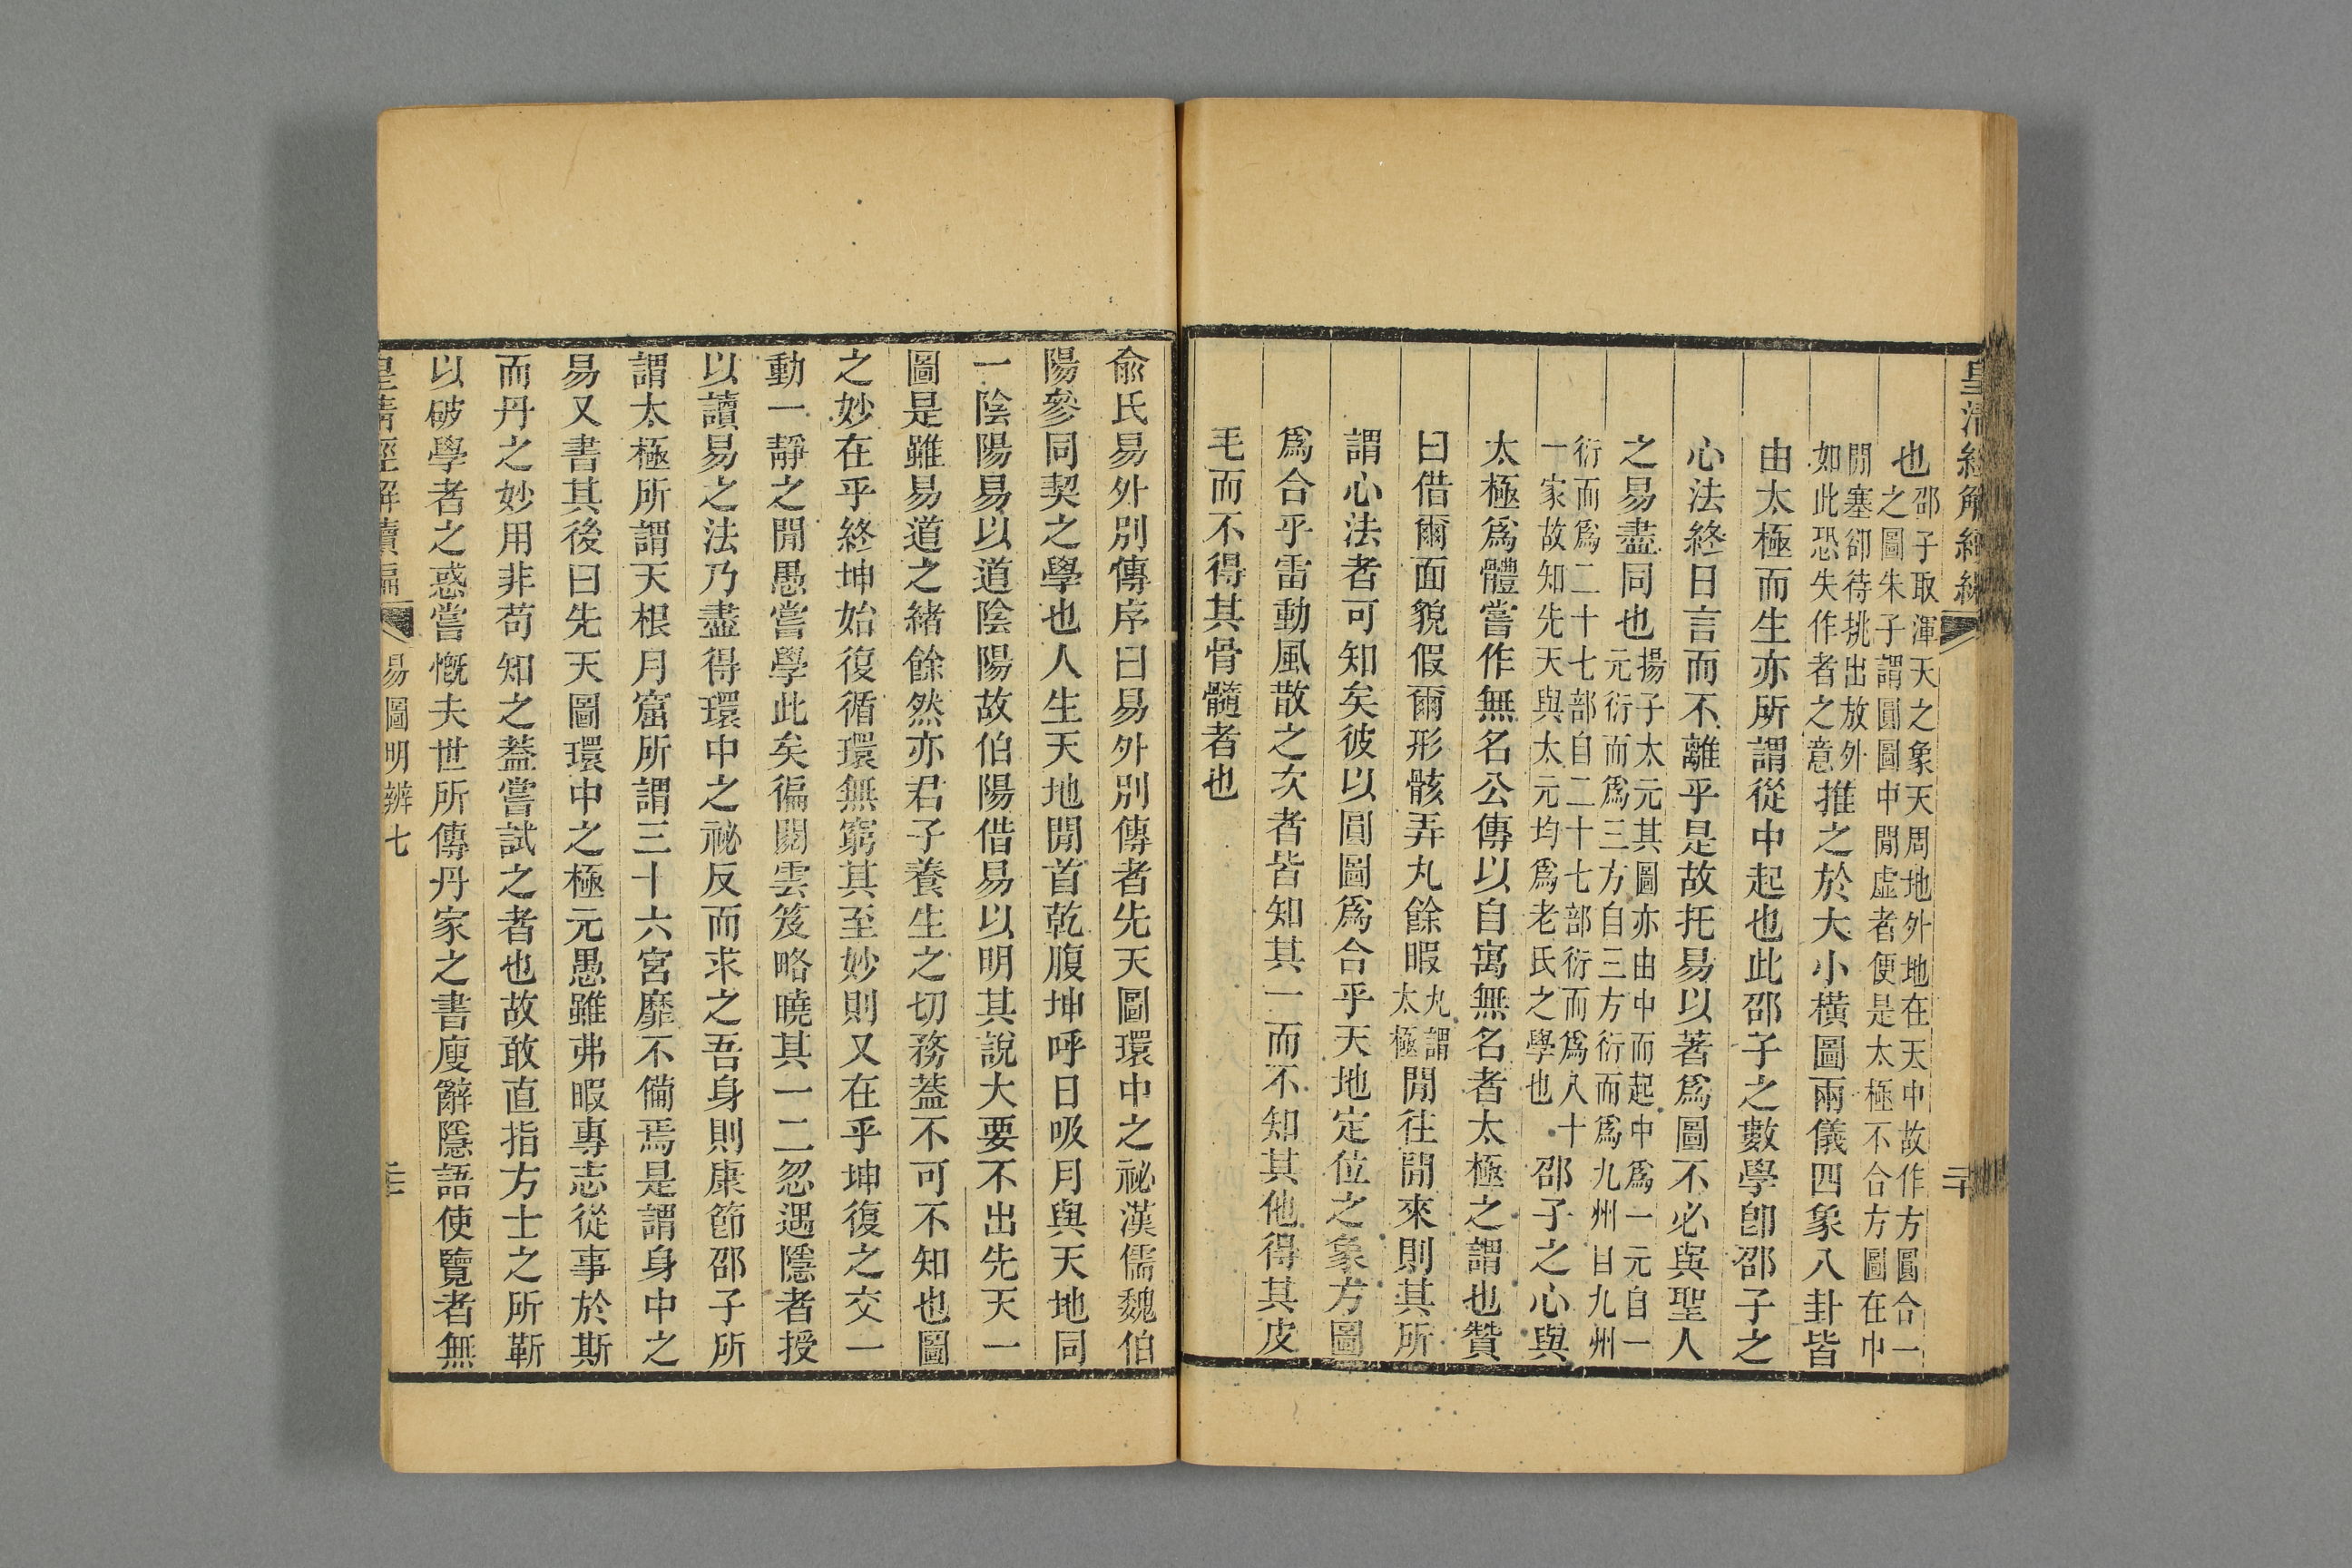 皇清經解續編
二十
也邵子取渾天之象天周地外地在天中故作方圓合一
之圖朱子謂圓圖中閒虛者便是太極不合方圖在中
閒塞卻待挑出放外
如此恐失作者之意推之於大小橫圖兩儀四象八卦皆
由太極而生亦所謂從中起也此邵子之數學卽邵子之
心法終日言而不離乎是故托易以著爲圖不必與聖人
之易盡同也揚子太元其圖亦由中而起中爲一元自一
元衍而爲三方自三方衍而爲九州自九州
衍而爲二十七部自二十七部衍而爲八十
一家故知先天與太元均爲老氏之學也邵子之心與
太極爲體嘗作無名公傳以自寓無名者太極之謂也贊
曰借爾面貌假爾形骸弄丸餘暇丸謂
太極閒往閒來則其所
謂心法者可知矣彼以圓圖爲合乎天地定位之象方圖
爲合乎雷動風散之次者皆知其一而不知其他得其皮
毛而不得其骨髓者也
俞氏易外別傳序曰易外別傳者先天圖環中之祕漢儒魏伯
陽參同契之學也人生天地閒首乾腹坤呼日吸月與天地同
一陰陽易以道陰陽故伯陽借易以明其說大要不出先天一
圖是雖易道之緒餘然亦君子養生之切務蓋不可不知也圖
之妙在乎終坤始復循環無窮其至妙則又在乎坤復之交一
動一靜之閒愚嘗學此矣徧閱雲笈略曉其一二忽遇隱者授
以讀易之法乃盡得環中之祕反而求之吾身則康節邵子所
謂太極所謂天根月窟所謂三十六宮靡不備焉是謂身中之
易又書其後曰先天圖環中之極元愚雖弗暇專志從事於斯
而丹之妙用非苟知之蓋嘗試之者也故敢直指方士之所靳
以破學者之惑嘗慨夫世所傳丹家之書廋辭隱語使覽者無
皇清經解續編
易圖明辨七